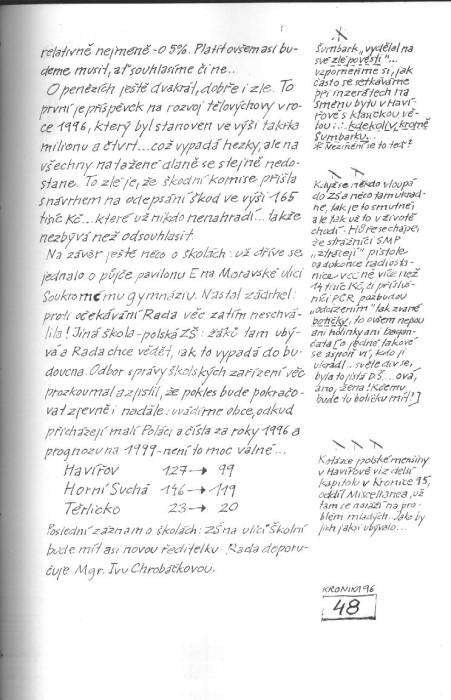 relativně nejméně - o 5%. Platit ovšem asi bu-
deme muset, ať souhlasíme či ne..
O penězích ještě dvakrát, dobře i zle. To
první je příspěvek na rozvoj tělovýchovy v ro-
ce 1996, který byl stanoven ve výši takřka
milionu a čtvrt...což vypadá hezky, ale na
všechny natažené dlaně se stejně nedo-
stane. To zlé je, že škodní komise přišla
s návrhem na odepsání škod ve výši 165
tisíc Kč... které už nikdo nenahradí.. takže
nezbývá než odsouhlasit.
Na závěr ještě něco o školách: už dříve se
jednalo o půjčce pavilonu E na Moravské ulici
Soukromému gymnáziu. Nastal zádrhel:
proti očekávání Rada věc zatím neschvá-
lila! Jiná škola - polská ZŠ: žáků tam ubý-
vá a Rada chce vědět, jak to vypadá do bu-
doucna. Odbor správy školských zařízení věc
prozkoumal a zjistil, že pokles bude pokračo-
vat zjevně i nadále: uvádíme obce, odkud
přicházejí malí Poláci a čísla za roky 1996 a
prognózu na 1999 - není to moc valné...
Havířov 127 → 99
Horní Suchá 146 → 119
Těrlicko 23 → 20
Poslední záznam o školách: ZŠ na ulici Školní
bude mít asi novou ředitelku. Rada doporu-
čuje Mgr. Ivu Chrobáčkovou.
Šumbark „vydělal na
své zlé pověsti"...
vzpomeňme si, jak
často se setkáváme
při inzerátech na
směnu bytu v Haví-
řově s klasickou vě-
tou:.. kdekoliv, kromě
Šumbarku...
Když se někdo vloupá
do ZŠ a něco tam ukrad-
ne, tak je to smutné
ale tak už to v životě
chodí. Hůře se chápe,
že strážníci SMP
„ztrácejí" pistole
ba dokonce radiosta-
nice v ceně více než
14 tisíc Kč, či přísluš-
níci PČR pozbudou
„odcizením" tak zvané
botičky, to ovšem nejsou
ani holínky ani bagan-
čata (o jedné takové
se aspoň ví, kdo ji
ukradl... světe div se,
byla to jistá D.Š... ová,
áno, žena! K čemu
bude tu botičku mít!)
K otázce polské menšiny
v Havířově viz delší
kapitolu v Kronice 95,
oddíl Miscellanea, už
tam se naráží na pro-
blém mladých. Jako by
jich jaksi ubývalo...
KRONIKA 96
48